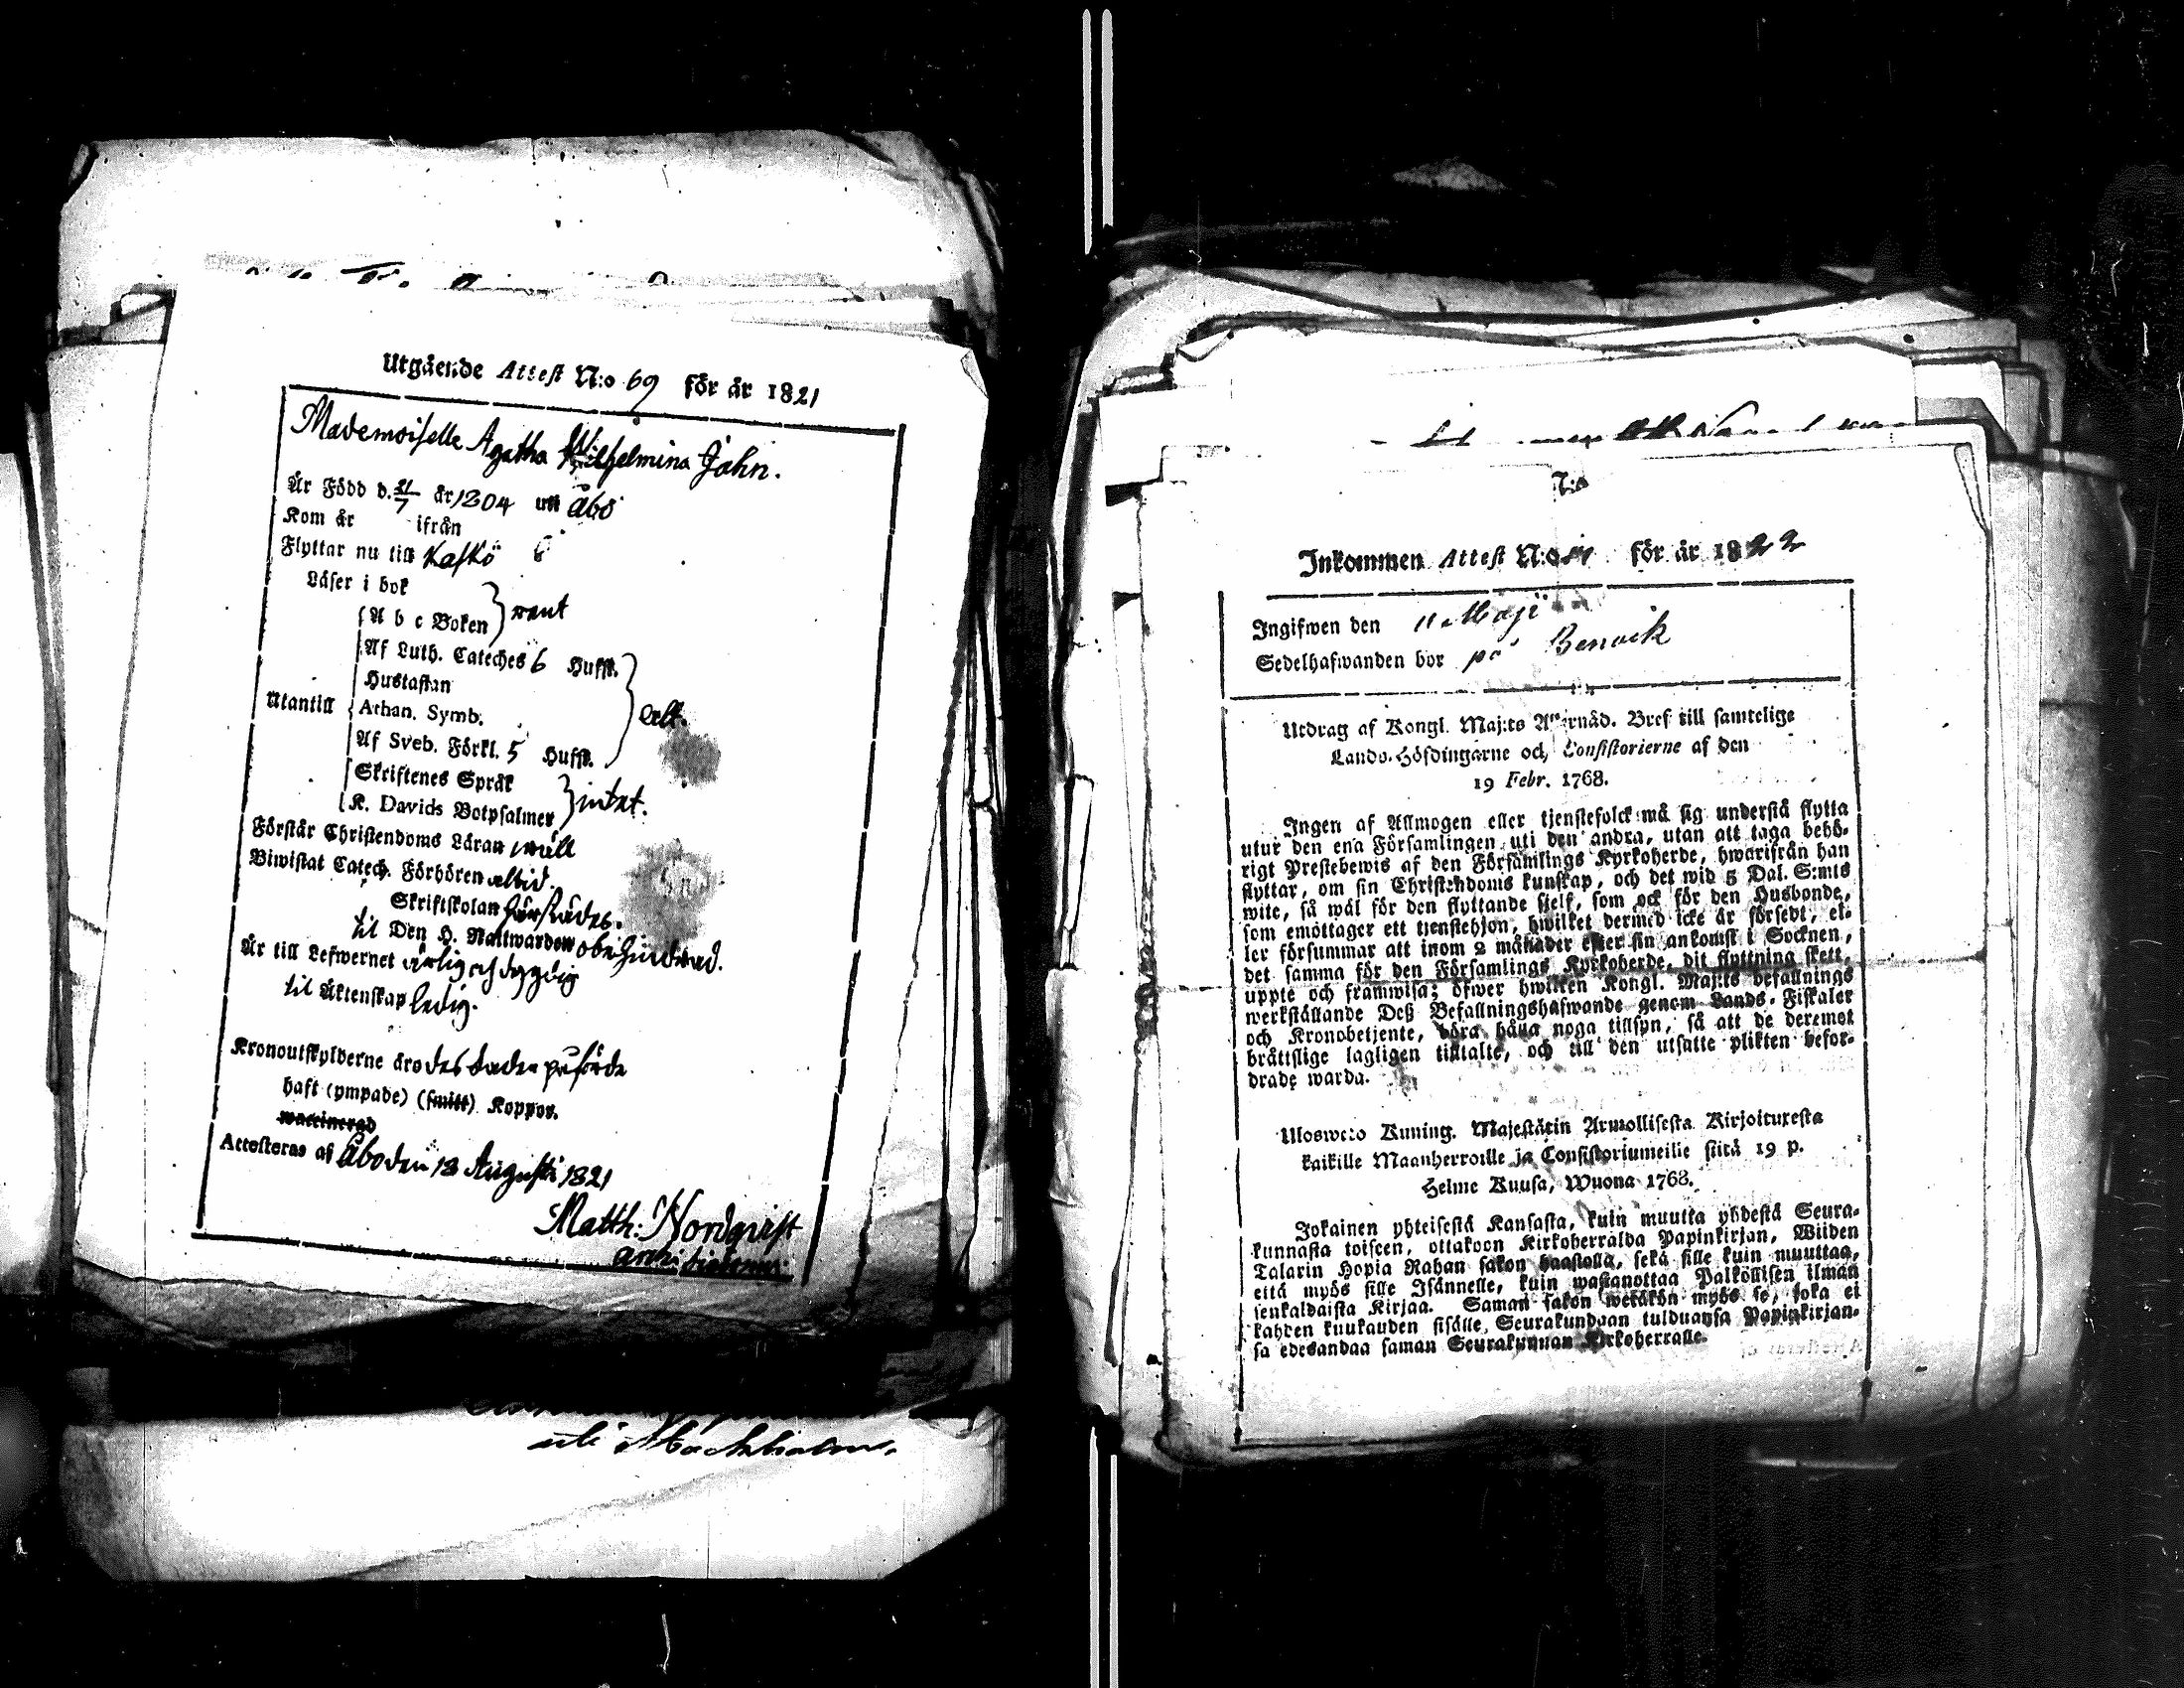 Utgående Attest N:o 69 för år 1821
Mademoiselle Agatha Wilhelmina Jahn.
Är Född d. 21/7 år 1804 uti Åbo
Kom år ifrån
Flyttar nu till Kaskö
Läser i bok
A b c Boken } rent
Af Luth. Cateches 6 Hufst.
Hustaflan
Utantill Athan. Symb.
Af Sveb. Förkl. 5 Hufst.
Skriftenes Språk
K. Davids Botpsalmer } intet.
Förstår Christendoms Läran
Biwistat Catech. Förhören altid.
Skriftskolan
til Den H. Nattwarden obehindrad.
Är till Lefwernet ärlig och dygdig
til Äktenskap ledig.
Kronoutskylderne äro
haft (ympade) (smitt) Koppor.
waccinerad
Attesteras af Åbo den 18 Augusti 1821
Matth: Nordqvist
uti Stockholm.
N:o
Inkommen Attest N:o för år 1822
Ingifwen den 11 Maji
Sedelhafwanden bor på Benvik
Utdrag af Kongl. Maj:ts Allernåd. Bref till samtelige
Lands-Höfdingarne och Consistorierne af den
19 Febr. 1768.
Ingen af Allmogen eller tjenstefolck må sig understå flytta
utur den ena Församlingen uti den andra, utan att taga behö-
rigt Prestebewis af den Församlings Kyrkoherde, hwarifrån han
flyttar, om sin Christendoms kunskap, och det wid 5 Dal. S:mts
wite, så wäl för den flyttande sjelf, som ock för den Husbonde,
som emottager ett tjenstehjon, hwilket dermed icke är försedt, el-
ler försummar att inom 2 månader efter sin ankomst i Socknen,
det samma för den Församlings Kyrkoherde, dit flyttning skett,
uppte och framwisa; öfwer hwilken Kongl. Maj:ts befallnings
werkställande Deß Befallningshafwande genom Lands-Fiskaler
och Kronobetjente, böra hålla noga tillsyn, så att de deremot
bråttslige lagligen tilltalte, och till den utsatte plikten befor-
drade warda.
Uloswero Kuning. Majestätin Armollisesta Kirjoituxesta
kaikille Maanherroille ja Consistoriumeille siitä 19 p.
Helme Kuusa, Wuona 1768.
Jokainen yhteisestä Kansasta, kuin muutta yhdestä Seura-
kunnasta toiseen, ottakoon Kirkoherralda Papinkirjan, Wiiden
Talarin Hopia Rahan sakon haastolla, sekä sille kuin muuttaa,
että myös sille Isännelle, kuin wastanottaa Palkollisen ilman
senkaldaista Kirjaa. Saman sakon wetäkön myös se, joka ei
kahden kuukauden sisälle Seurakundaan tulduansa Papinkirjan-
sa edesandaa saman Seurakunnan Kirkoherralle.